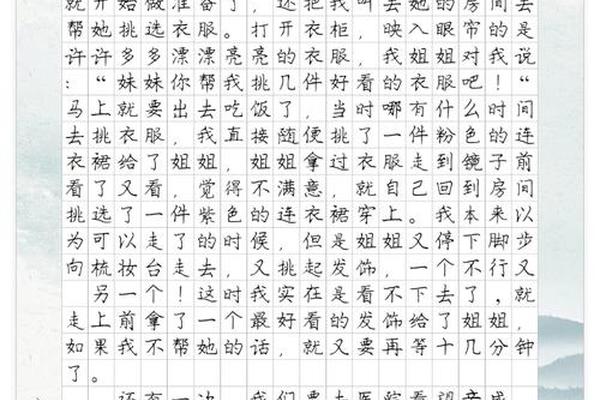 就开始做准备了，还把我叫去她的房间去
帮她挑选衣服。打开衣柜，映入眼帘的是
许许多多漂漂亮亮的衣服，我姐姐对我说
：“妹妹你帮我挑几件好看的衣服吧！“
马上就要出去吃饭了，当时哪有什么时间
去挑衣服，我直接随便挑了一件粉色的连
衣裙给了姐姐，姐姐拿过衣服走到镜子前
看了又看，觉得不满意，就自己回到房间
挑选了一件紫色的连衣裙穿上。我本来以
为可以走了的时候，但是姐姐又停下脚步
向梳妆台走去，又挑起发饰，一个不行又
另一个！这时我实在是看不下去了，就
走上前拿了一个最好看的发饰给了姐姐，
如果我不帮她的话，就又要再等十几分钟
了。
还有一次，我们要去医院看望亲戚